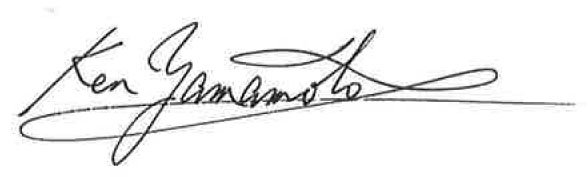 Ken Yamamoto